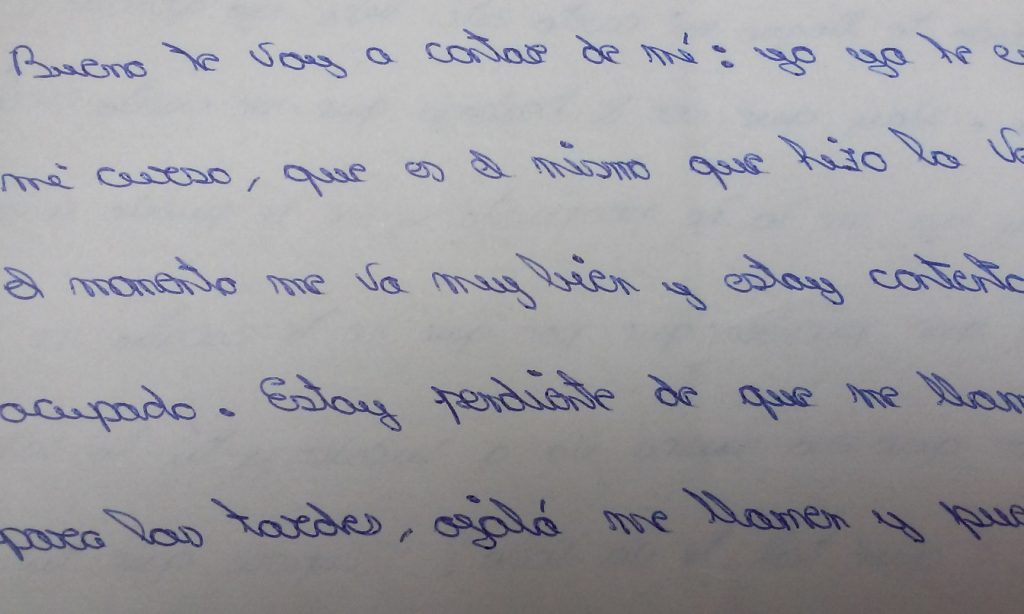 Bueno te voy a contar de mí: yo ya te e
mi curso, que es el mismo que hizo la Va
el momento me va muy bien y estoy contento
ocupado. Estoy pendiente de que me llam
para las tardes, ojalá me llamen y pue